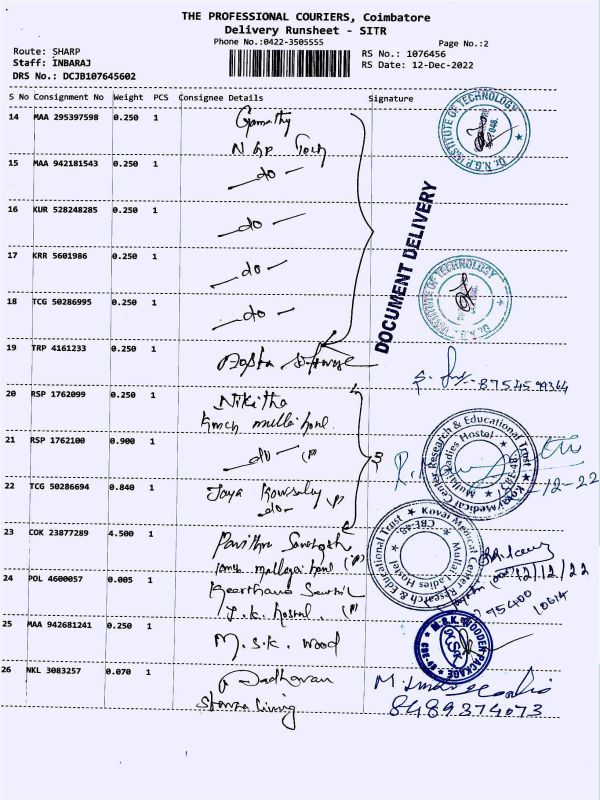 THE PROFESSIONAL COURIERS, Coimbatore
Delivery Runsheet - SITR
Phone No.:0422-3505555
Page No.:2
Route: SHARP
RS No.: 1076456
Staff: INBARAJ
RS Date: 12-Dec-2022
DRS No.: DCJB107645602
S No Consignment No Weight PCS Consignee Details Signature
14 MAA 295397598 0.250 1 Gomathy
NGP Tech
15 MAA 942181543 0.250 1 - do -
16 KUR 528248285 0.250 1 - do -
17 KRR 5601986 0.250 1 - do -
18 TCG 50286995 0.250 1 - do -
DOCUMENT DELIVERY
Dr. N.G.P. INSTITUTE OF TECHNOLOGY
INSTITUTE OF TECHNOLOGY
19 TRP 4161233 0.250 1
87545 99364
20 RSP 1762099 0.250 1 Nikitha
kmch mullai
21 RSP 1762100 0.900 1 - do - (P)
22 TCG 50286694 0.840 1 Jaya
- do -
Kovai Medical Center Research & Educational Trust
Mullai Ladies Hostel
12-22
23 COK 23877289 4.500 1 Pavithra Santosh
Kovai Medical Center Research & Educational Trust
Mullai Ladies Hostel
CBE-48
24 POL 4600057 0.005 1 Keerthana
12/12/22
75400
10614
25 MAA 942681241 0.250 1 M.S.K. wood
M.S.K. WOODEN PACKAGE
26 NKL 3083257 0.070 1 Aadhavan
Stanza living
8489374073